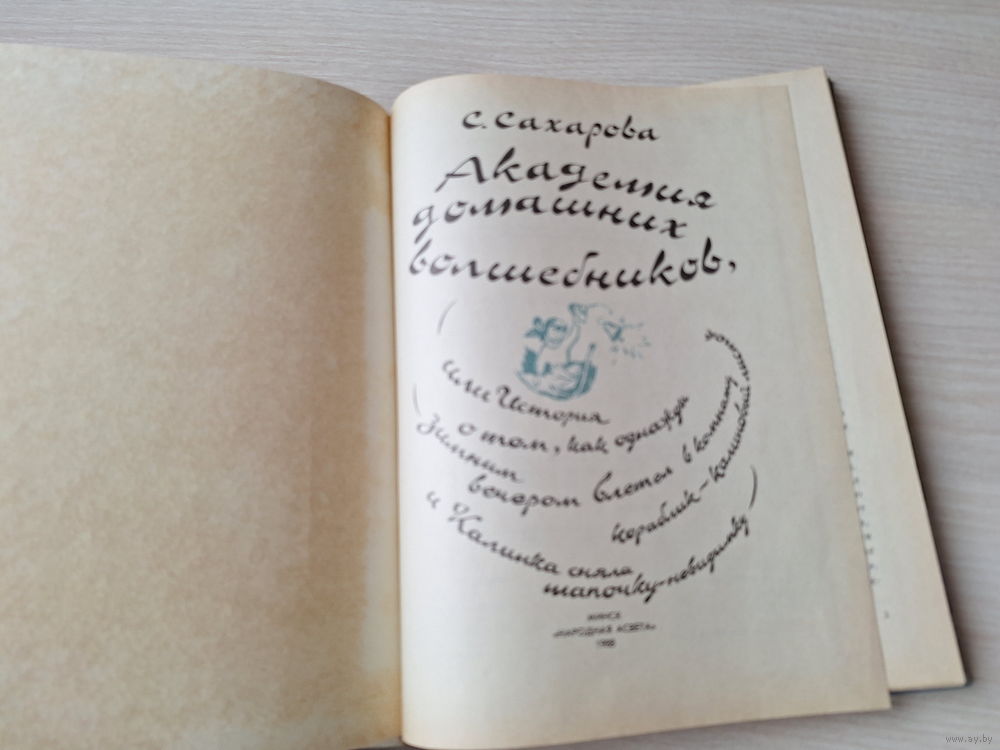 С. Сахарова
Академия
домашних
волшебников,
или История
о том, как однажды
зимним
вечером влетел в комнату
кораблик-калиновый листок
и Калинка сняла
шапочку-невидимку
МИНСК
«НАРОДНАЯ АСВЕТА»
www.ay.by